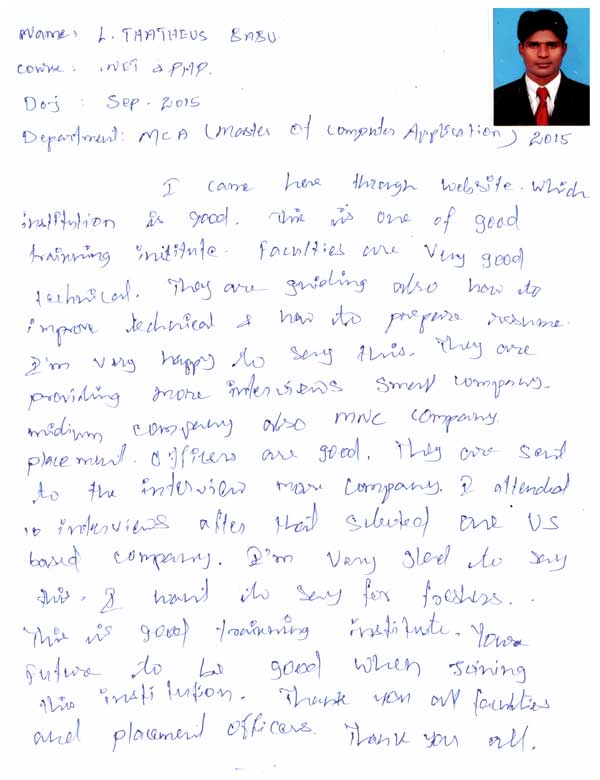 Name: L. THATHEUS BABU
Course: .NET & PHP.
Doj : Sep. 2015
Department: MCA (Master of Computer Application) 2015
I came here through website. which
institution is good. This is one of good
trainning institute. faculties are very good
technical. They are guiding also how to
improve technical & how to prepare resume.
I'm very happy to say this. They are
providing more interviews small company.
midium company also MNC company.
placement. Officers are good. They are send
to the interview more company. I attended
10 interviews after that selected one US
based company. I'm very gled to say
this. I want to say for freshers..
This is good trainning institute. Your
future to be good when joining
this institution. Thank you all faculties
and placement officers. Thank you all.